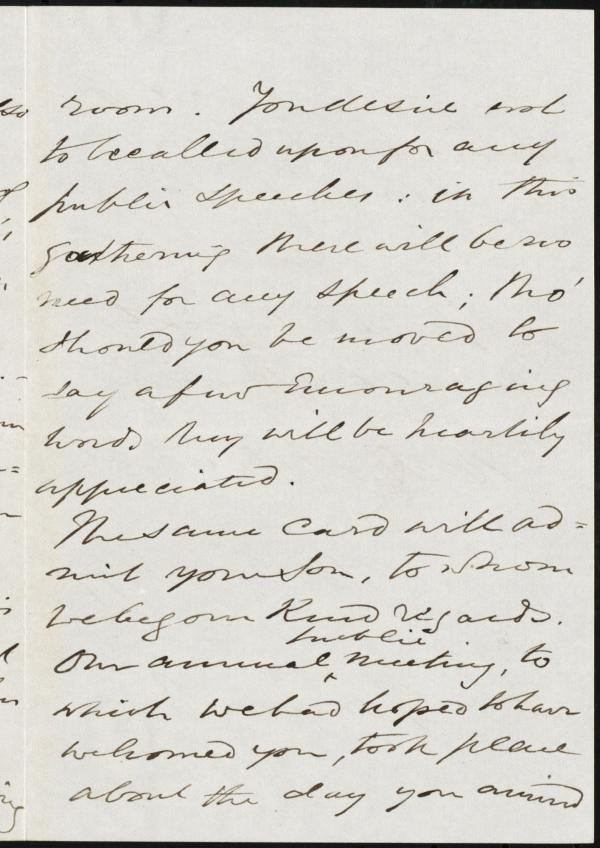 room. You desire not
to be called upon for any
public speeches: in this
gathering there will be no
need for any speech; tho'
should you be moved to
say a few encouraging
words they will be heartily
appreciated.
The same card will ad=
mit your Son, to whom
we beg our Kind regards.
public
Our annual ^ meeting, to
which we had hoped to have
welcomed you, took place
about the day you arrived